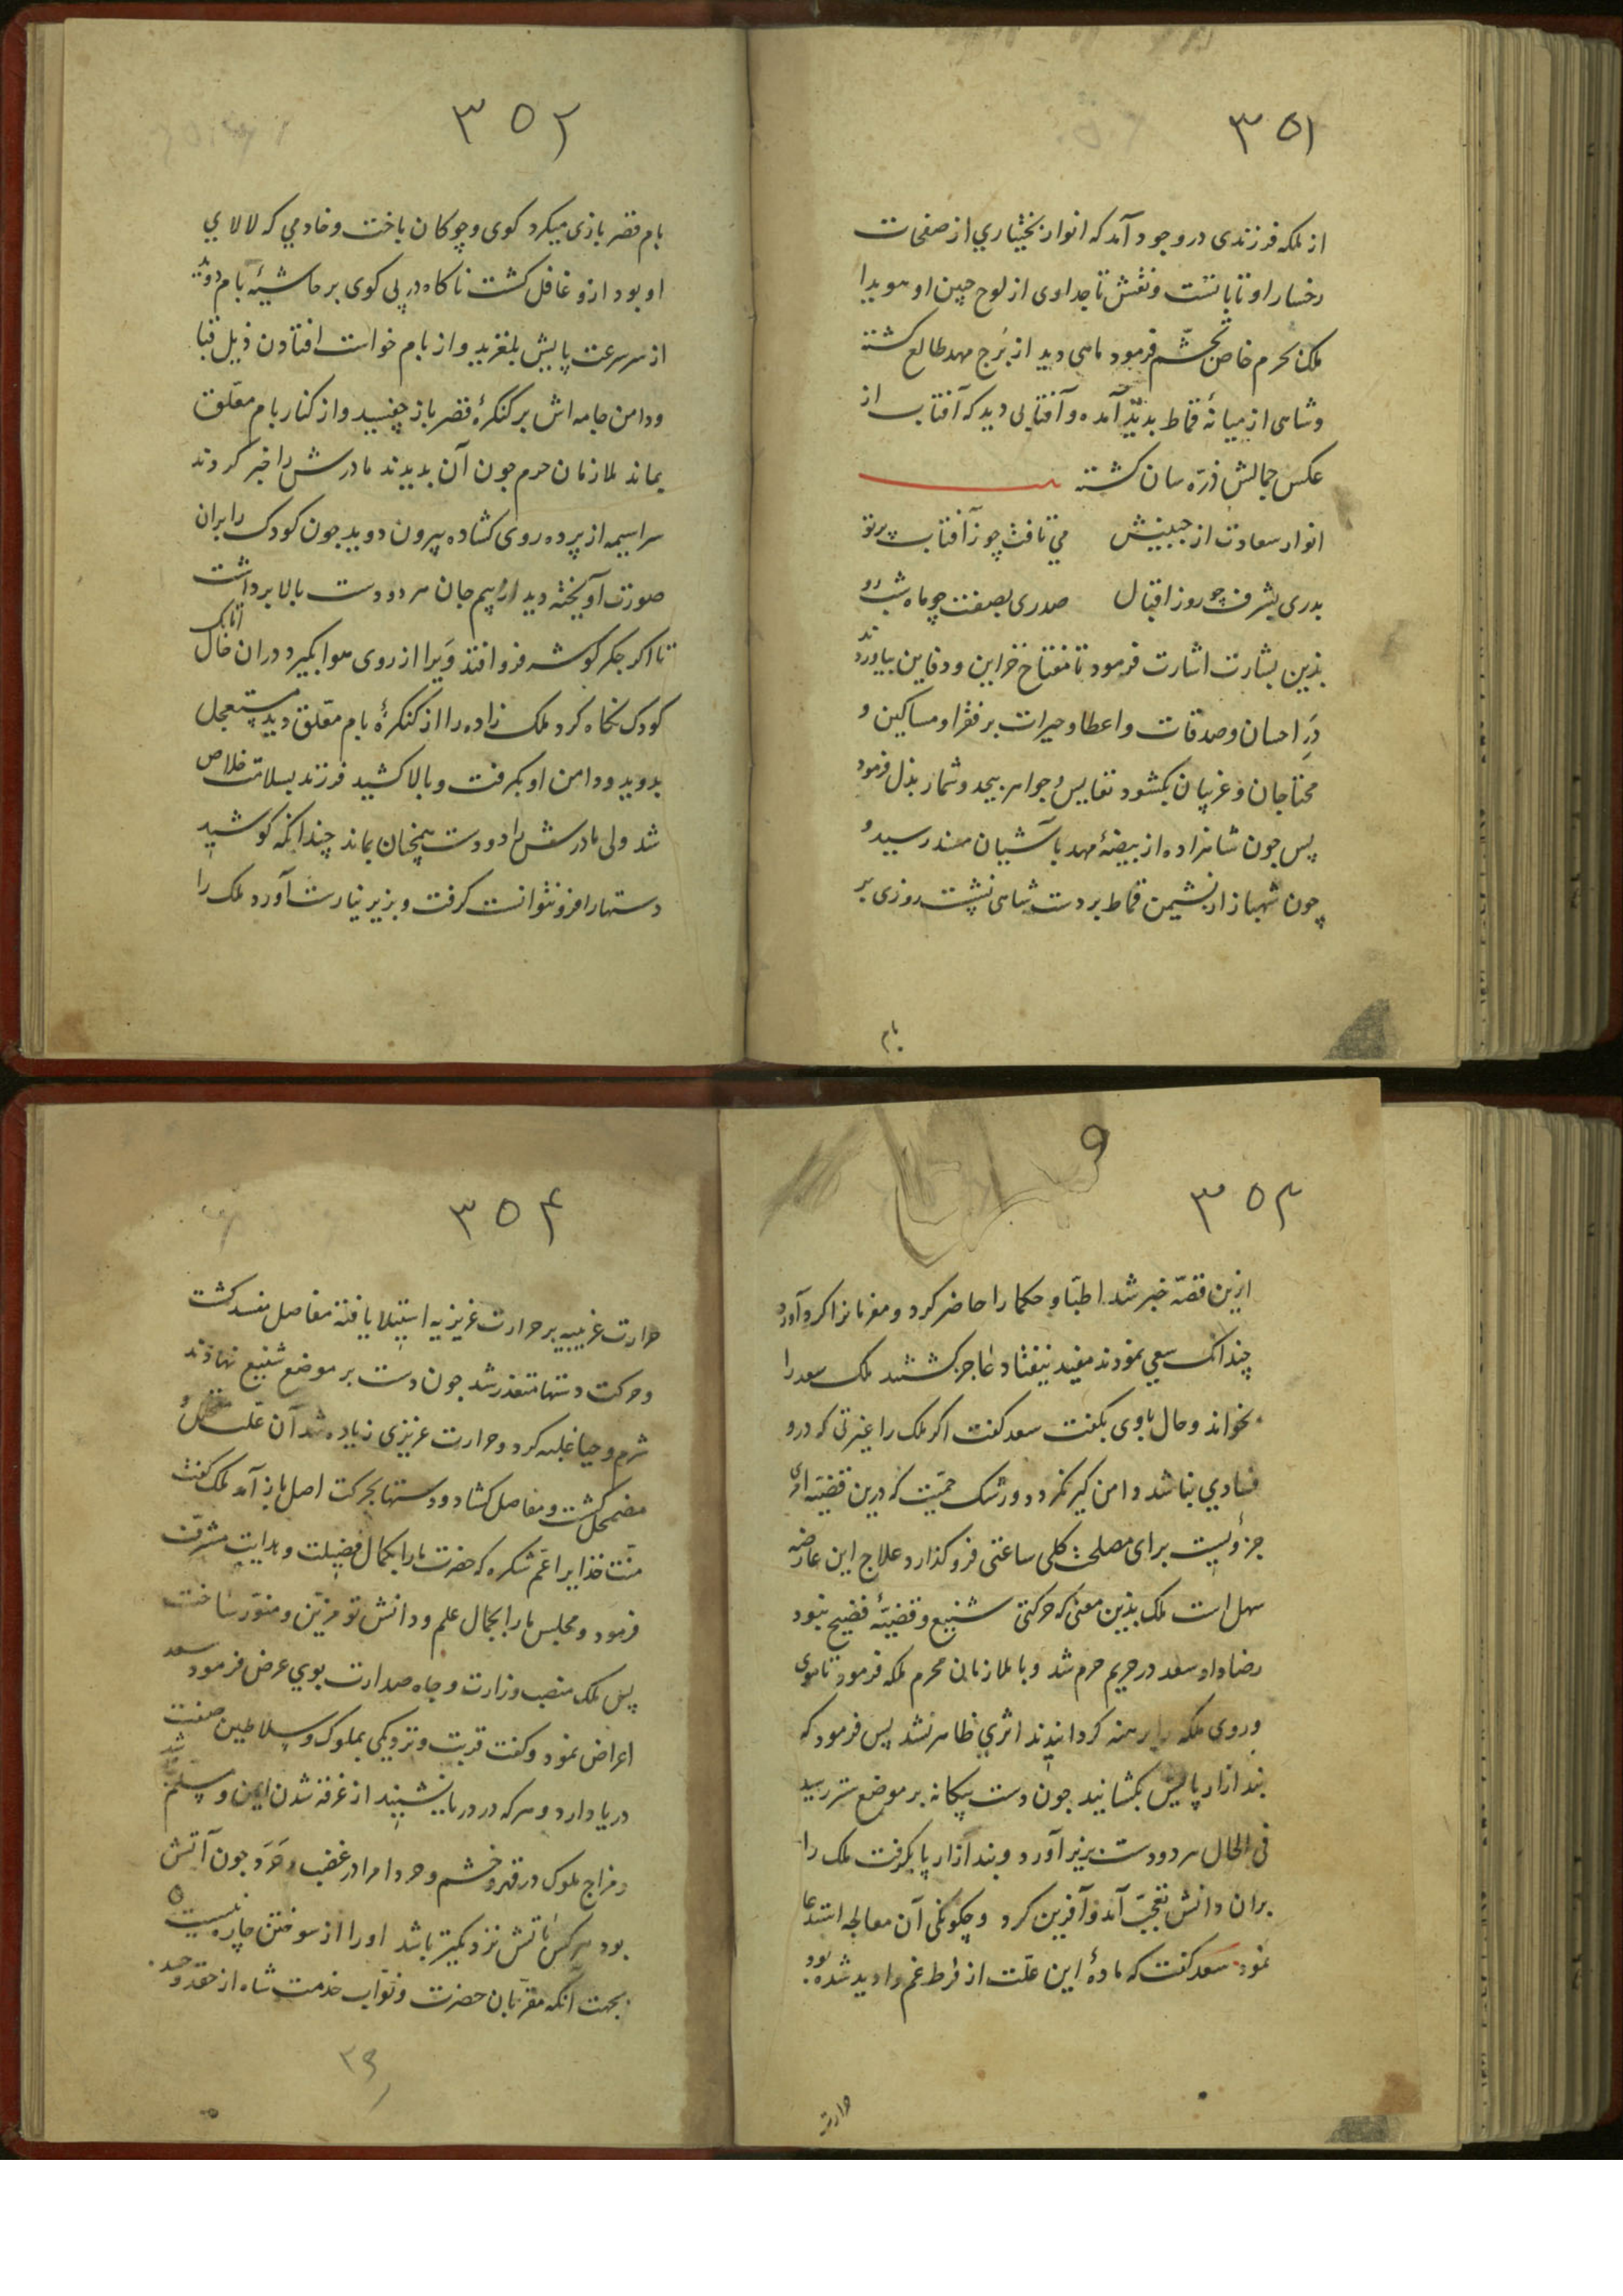 ٣٥١
از ملکه فرزندی در وجود آمد که انوار بختیاري از صفحات
رخسار او تابانست و نقش تاجداوی از لوح جبین او هویدا
ملک بحرم خاص تجشّم فرمود ماهی دید از برج مهد طالع کشته
وشاهی از میانهٔ قماط بدید آمده و آفتابی دید که آفتاب از
عکس جمالش ذرّه سان کشته
انوار سعادت از جبینش می تافت چو زآفتاب پرتو
بدری بشرف چو روز اقبال صدری بصفت چو ماه شب رو
بذین بشارت اشارت فرمود تا مفتاح خزاین و دفاین بیاوردند
دَرِ احسان و صدقات و اعطا و خیرات بر فقرا و مساکین و
محتاجان و غریبان بکشود نفایس و جواهر بیحد و شمار بذل فرمود
پس جون شاهزاده از بیضهٔ مهد بآشیان رسید و
چون شهباز از نشیمن قماط بر دست شاهی نشست روزی بر
بام
٣٥٢
بام قصر بازی میکرد کوی و چوکان باخت و خادمي که لالاي
او بود ازو غافل کشت ناکاه در پی کوی بر حاشیهٔ بام دوید
از سر سرعت پایش بلغزید و از بام خواست افتادن ذیل قبا
ودامن جامه اش بر کنکرهٔ قصر باز چفسید و از کنار بام معلّق
بماند ملازمان حرم جون آن بدیدند مادرش را خبر کردند
سراسیمه از پرده روی کشاده بیرون دوید جون کودک را بران
صورت آویخته دید از بیم جان هر دو دست بالا برداشت
تا اکر جکر کوشه فرو افتد ویرا از روی هوا بکیرد دران حال اتابک
کودک نکاه کرد ملک زاده را از کنکرهٔ بام معلّق دید مستعجل
بدوید ودامن او بکرفت و بالا کشید فرزند بسلامت خلاص
شد ولی مادرش را دو دست همچنان بماند چندانکه کوشید
دستها را فرو نتوانست کرفت و بزیر نیارست آورد ملک را
٣٥٣
ازین قصّه خبر شد اطبّا و حکما را حاضر کرد و مغربانرا کرد آورد
چندانک سعي نمودند مفید نیفتاد عاجز کشتند ملک سعد را
بخواند وحال باوی بکفت سعد کفت اکر ملک را غیرتی که درو
فسادي نباشد دامن کیر نکردد ورشک حمیّت که درین قضیّه امری
جزویست برای مصلحت کلی ساعتی فرو کذارد علاج این عارضه
سهل است ملک بذین معنی که حرکتی شنیع و قضیّهٔ فضیح نبود
رضا داد سعد در حریم حرم شد و با ملازمان محرم ملکه فرمود تا موی
وروی ملکه را برهنه کردانیدند اثري ظاهر نشد پس فرمود که
بند ازار پایش بکشایند جون دست بیکانه بر موضع ستر رسید
فی الحال هر دو دست بزیر آورد و بند ازار پا بکرفت ملک را
بران دانش تعجّب آمد و آفرین کرد و چکونکی آن معالجه استدعا
نمود سعد کفت که مادهٔ این علّت از فرط غم وا دید شده بود
حرارت
٣٥٤
حرارت غریبیه بر حرارت غریزیه استیلا یافته مفاصل منسد کشت
وحرکت دستها متعذر شد جون دست بر موضع شنیع نهادند
شرم و حیا غلبه کرد و حرارت غریزی زیاده شد آن علّت
مضمحل کشت و مفاصل کشاد و دستها بحرکت اصل باز آمد ملک کفت
منّت خذایرا عمّ شکره که حضرت ما را بکمال فضیلت و هدایت مشرّف
فرمود و مجلس ما را بجمال علم و دانش تو مزیّن و منوّر ساخت
پس ملک منصب وزارت و جاه صدارت بوي عرض فرمود سعد
اعراض نمود و کفت قربت و نزدیکی بملوک و سلاطین صفت
دریا دارد و هر که در دریا نشیند از غرقه شدن ایمن و مسلّم نباشد
ومزاج ملوک در قهر و خشم و امرا در غضب و حَرَد جون آتش
بود هر کس بآتش نزدیکتر باشد او را از سوختن چاره نیست
بجهت آنکه مقرّبان حضرت و نوّاب خدمت شاه از حقد و حسد